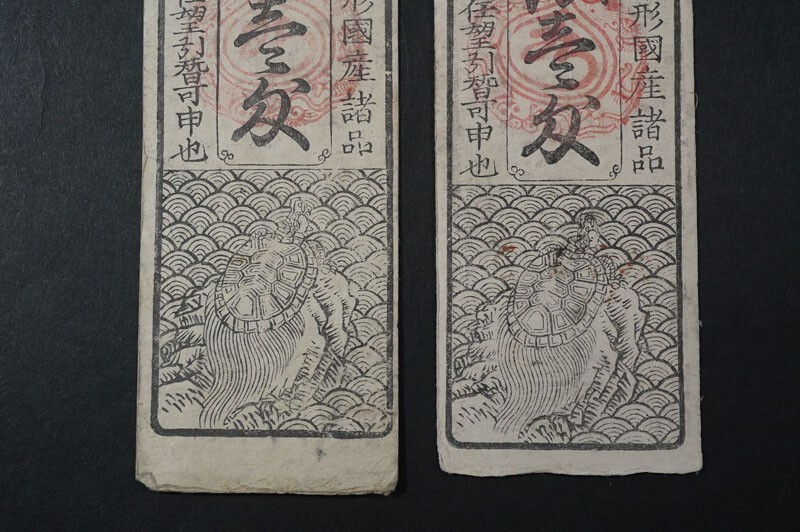 形國産諸品
壹匁
任望引替可申也
形國産諸品
壹匁
任望引替可申也